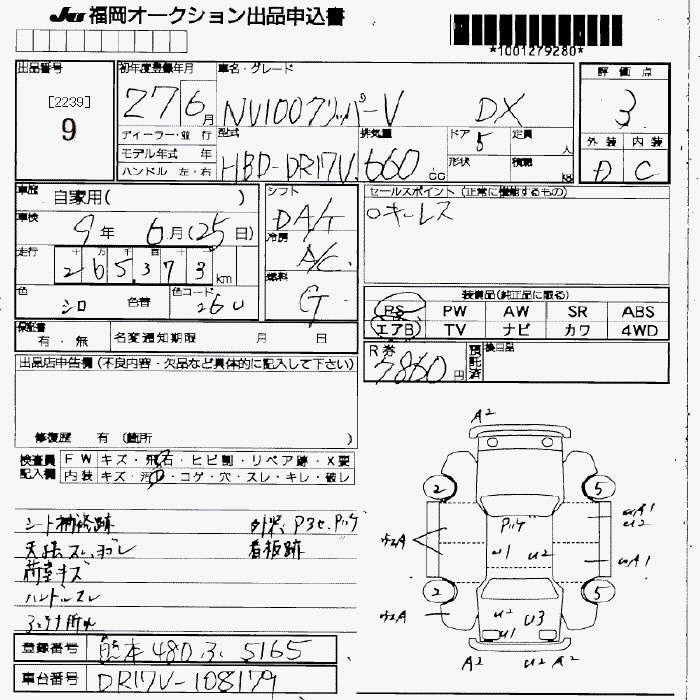 JU 福岡オークション出品申込書
*1001279280*
出品番号
[2239]
9
初年度登録年月
27 6月
車名・グレード
NV100クリッパーV DX
評価点
3
ディーラー・並行
モデル年式 年
ハンドル 左・右
型式
HBD-DR17V
排気量
660 cc
ドア 5
定員 人
形状
積載 kg
外装 内装
D C
車歴 自家用( )
車検 9年 6月(25日)
走行 十万千百十
265,373 km
色 シロ 色替
色コード 26U
シフト DA/T
冷房 A/C
燃料 G
セールスポイント(正常に機能するもの)
○キーレス
装備品(純正品に限る)
PS PW AW SR ABS
エアB TV ナビ カワ 4WD
保証書 有・無
名変通知期限 月 日
R券 7860円
預託済
後日品
出品店申告欄(不良内容・欠品など具体的に記入して下さい)
修復歴 有(箇所 )
検査員記入欄
FW キズ・飛石・ヒビ割・リペア跡・X要
内装 キズ・汚・コゲ・穴・スレ・キレ・破レ
シート補修跡
天張スレ、ヨゴレ
荷室キズ
ハンドルスレ
看板跡
A2
2 5
UA1
U2
U1 U2
UA1
2 5
U2 U3
U1
A2 A2
登録番号 熊本 480 3 5165
車台番号 DR17V-108179